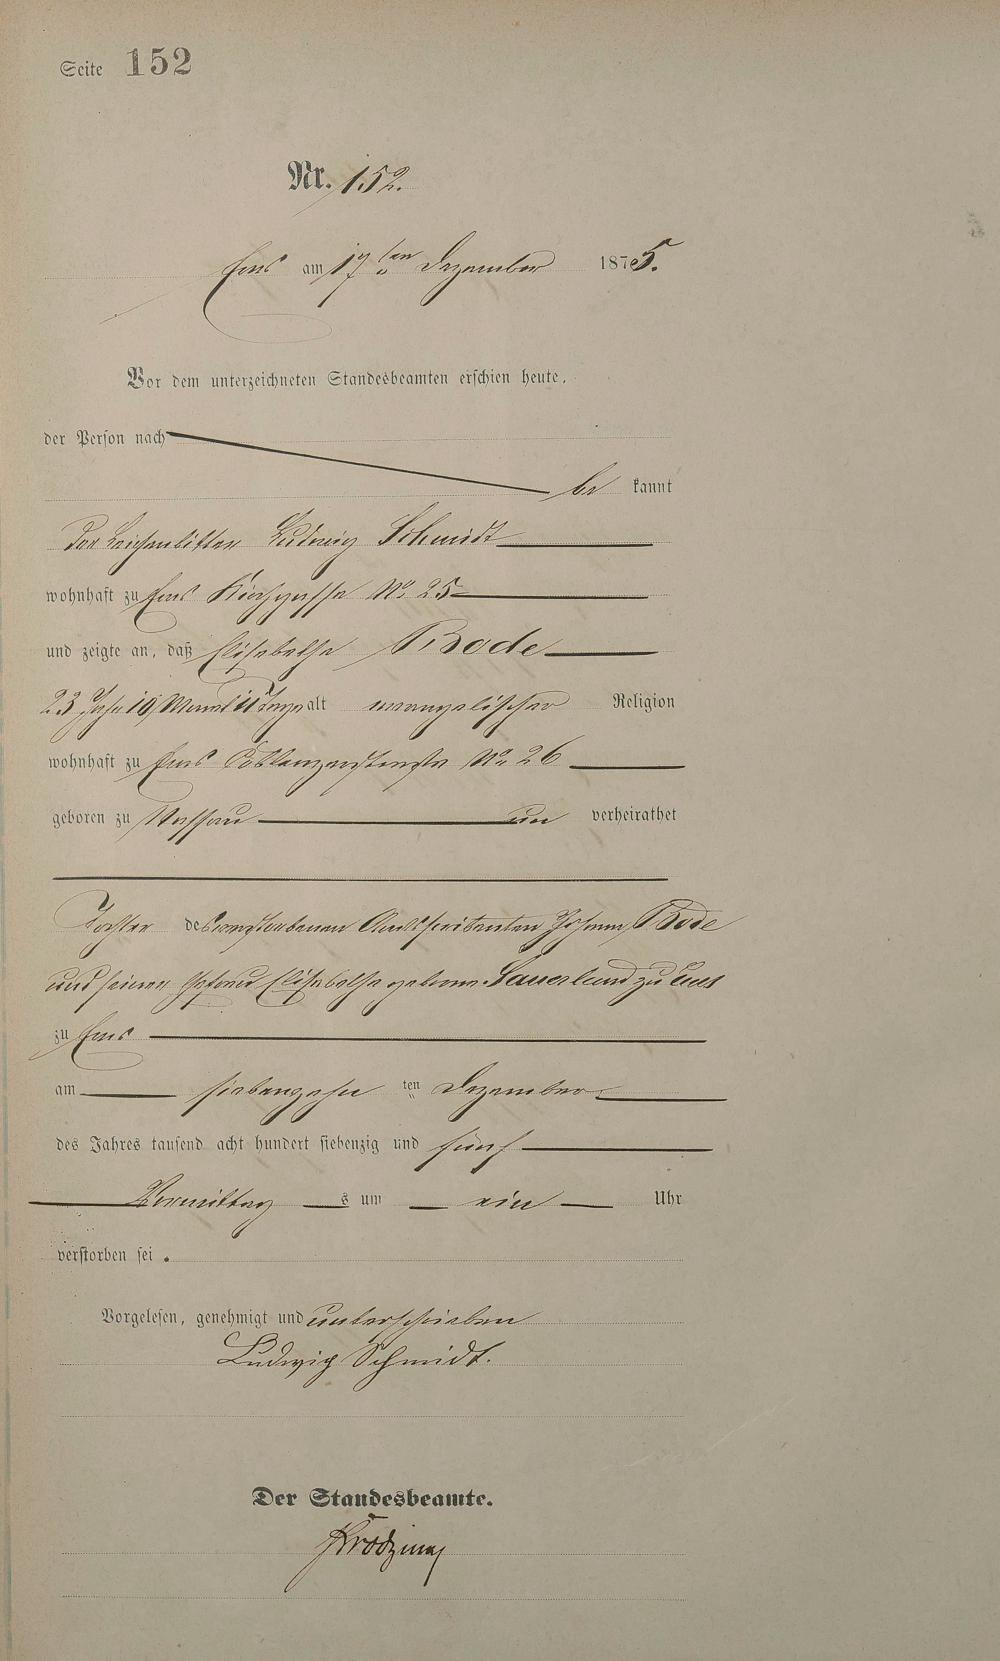 Seite 152
Nr. 152.
Ems am 17ten Dezember 1875.
Vor dem unterzeichneten Standesbeamten erschien heute,
der Person nach
be kannt
der Leichenbitter Ludwig Schmidt
wohnhaft zu Ems Kirchgasse No. 25
und zeigte an, daß Elisabethe Bode
23 Jahr 10 Monat 11 Tage alt evangelischer Religion
wohnhaft zu Ems Coblenzerstraße No. 26
geboren zu Nassau un verheirathet
Tochter des verstorbenen Johann Bode
und seiner Ehefrau Elisabethe geborne Sauerland zu Ems
zu Ems
am siebenzehn ten Dezember
des Jahres tausend acht hundert siebenzig und fünf
Vormittag s um ein Uhr
verstorben sei.
Vorgelesen, genehmigt und unterschrieben
Ludwig Schmidt.
Der Standesbeamte.